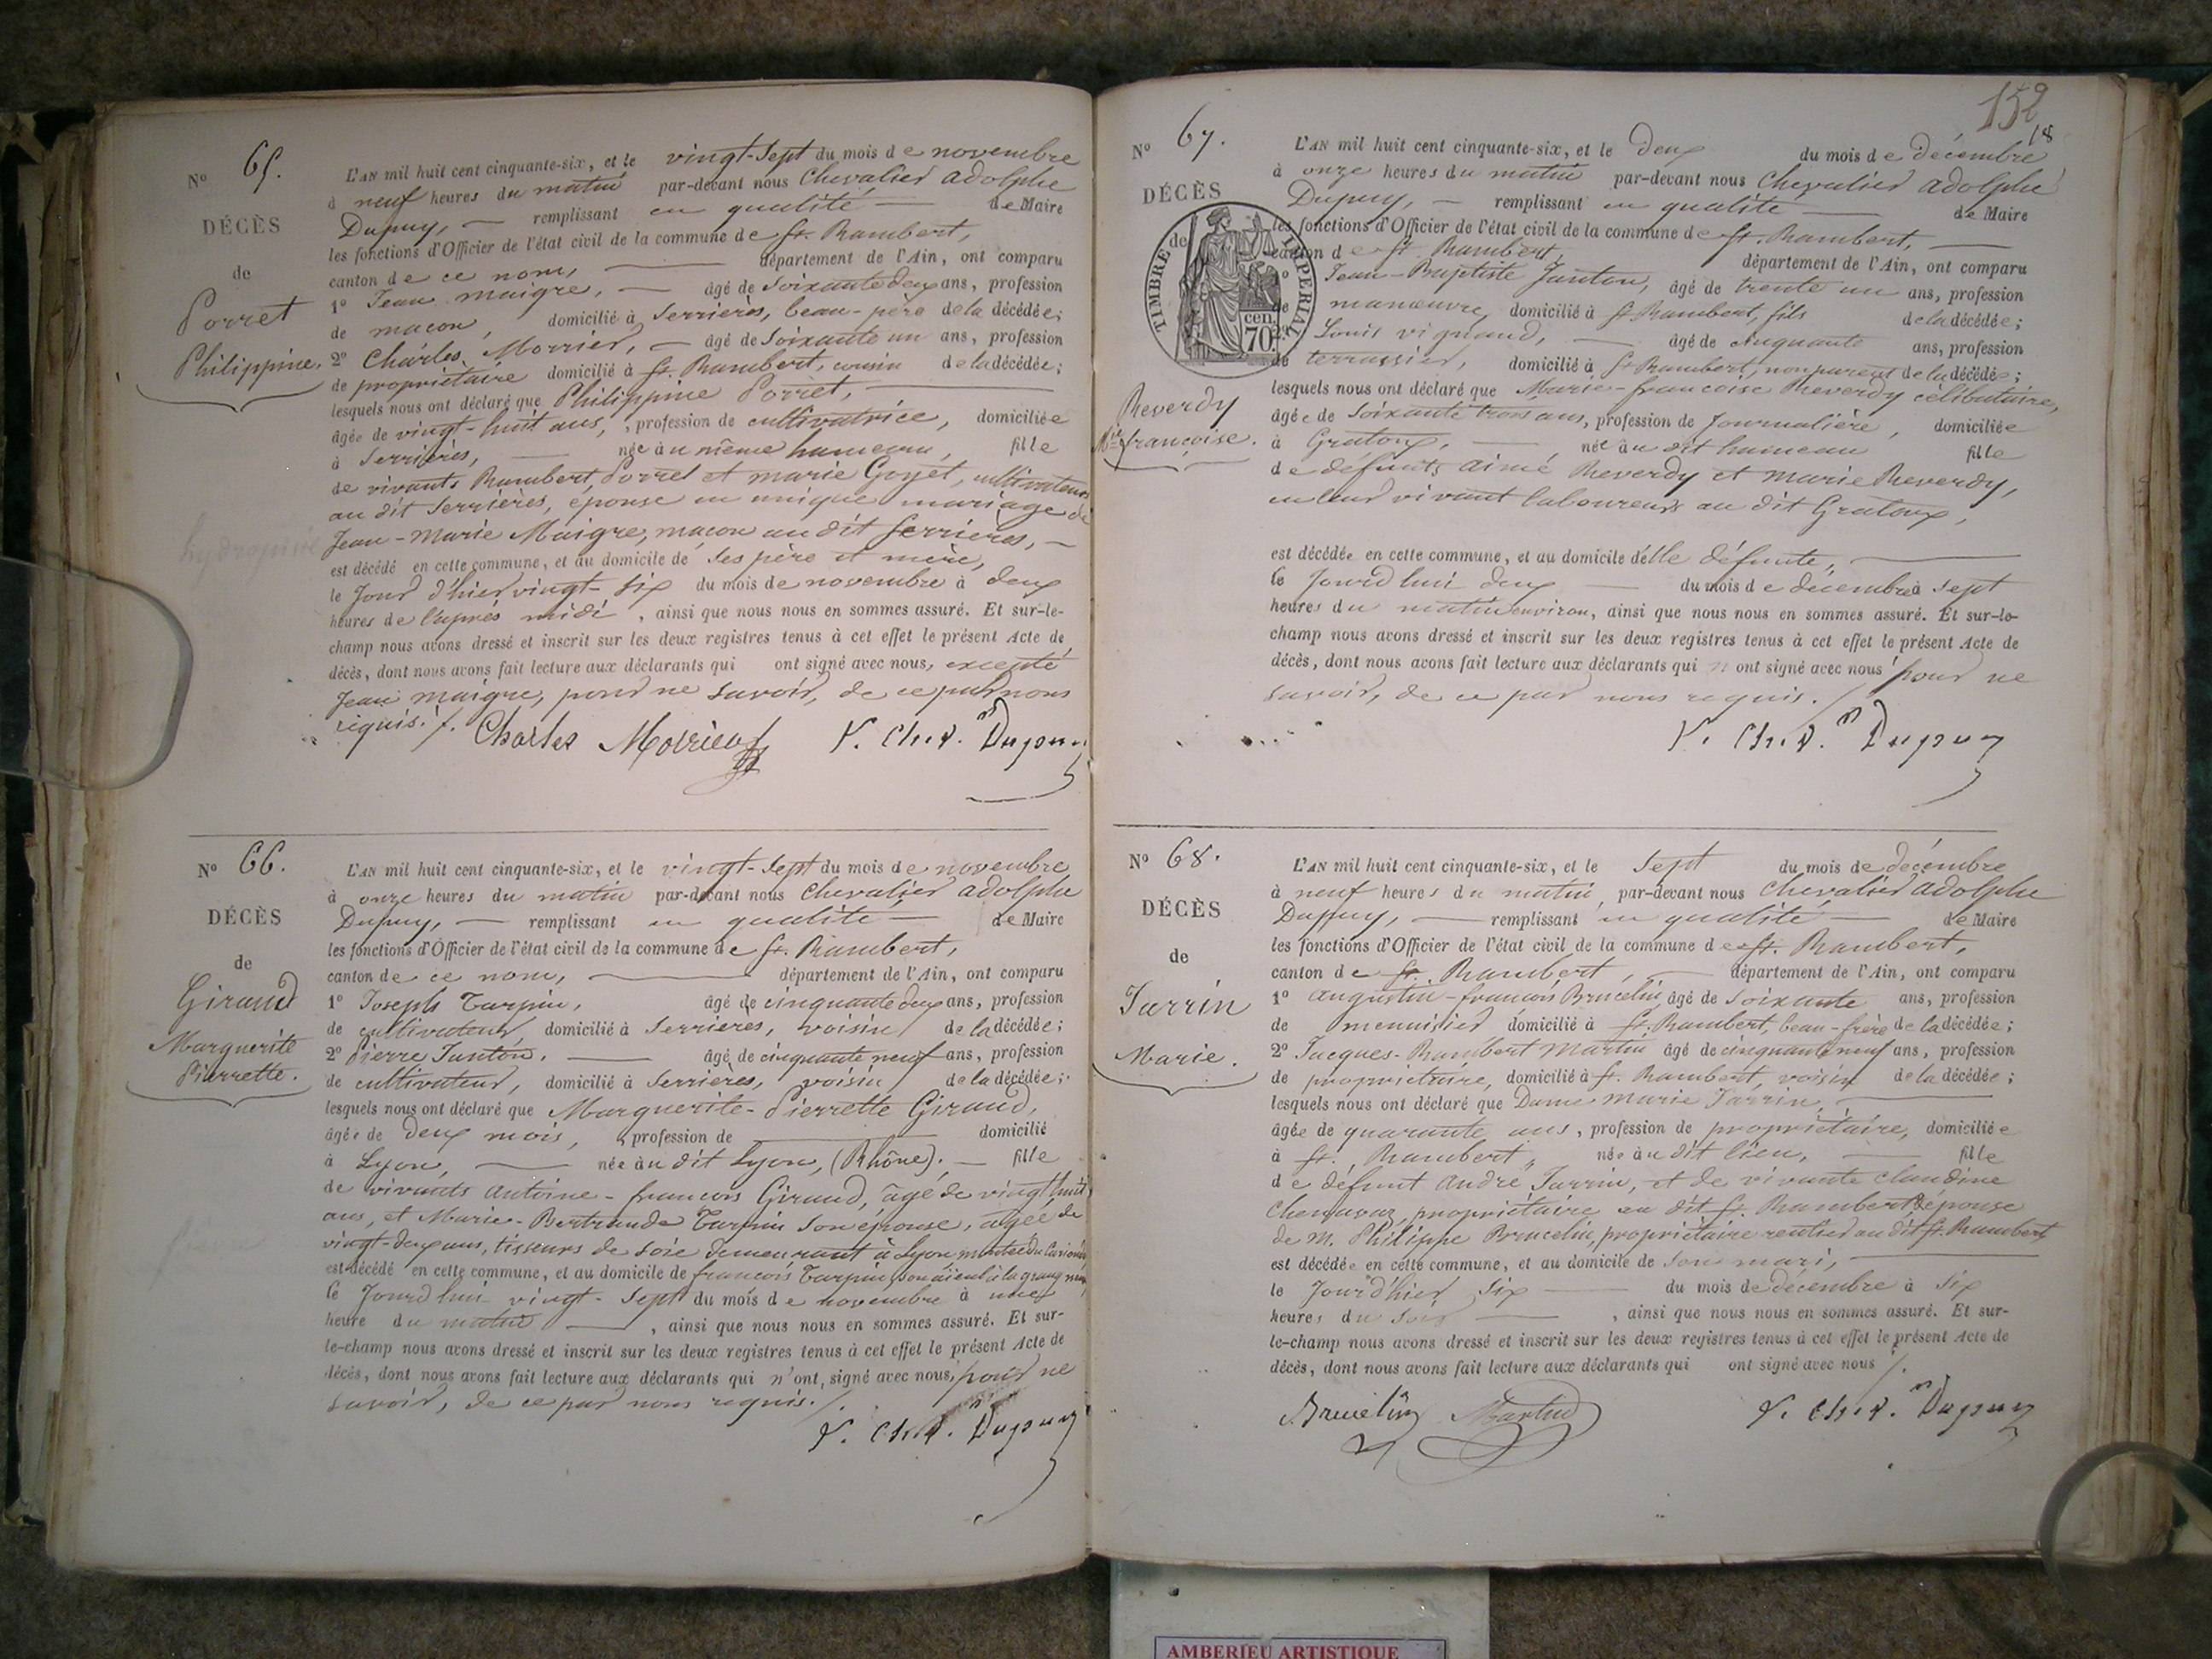 Nº 65.
DÉCÈS
de
Porret
Philippine.
hydropisie
L'AN mil huit cent cinquante-six, et le vingt-sept du mois de novembre
à neuf heures du matin par-devant nous Chevalier Adolphe
Dupuy, remplissant en qualité de Maire
les fonctions d'Officier de l'état civil de la commune de St. Rambert,
canton de ce nom, département de l'Ain, ont comparu
1º Jean Maigre, âgé de soixante deux ans, profession
de maçon, domicilié à Serrières, beau-père de la décédée;
2º Charles Morrier, âgé de soixante un ans, profession
de propriétaire domicilié à St. Rambert, cousin de la décédée;
lesquels nous ont déclaré que Philippine Porret,
âgée de vingt-huit ans, profession de cultivatrice, domiciliée
à Serrières, née au même hameau, fille
de vivants Rambert Porret et Marie Goyet, cultivateurs
au dit Serrières, épouse en unique mariage de
Jean-Marie Maigre, maçon au dit Serrières,
est décédé en cette commune, et au domicile de ses père et mère,
le jour d'hier vingt-six du mois de novembre à deux
heures de l'après midi, ainsi que nous nous en sommes assuré. Et sur-le-
champ nous avons dressé et inscrit sur les deux registres tenus à cet effet le présent Acte de
décès, dont nous avons fait lecture aux déclarants qui ont signé avec nous, excepté
Jean Maigre, pour ne savoir, de ce par nous
requis. /.
Charles Morrier V. Ch.r A. Dupuy
Nº 66.
DÉCÈS
de
Giraud
Marguerite
Pierrette.
L'AN mil huit cent cinquante-six, et le vingt-sept du mois de novembre
à onze heures du matin par-devant nous Chevalier Adolphe
Dupuy, remplissant en qualité de Maire
les fonctions d'Officier de l'état civil de la commune de St. Rambert,
canton de ce nom, département de l'Ain, ont comparu
1º Joseph Turpin, âgé de cinquante deux ans, profession
de cultivateur, domicilié à Serrières, voisin de la décédée;
2º Pierre Janton, âgé de cinquante neuf ans, profession
de cultivateur, domicilié à Serrières, voisin de la décédée;
lesquels nous ont déclaré que Marguerite-Pierrette Giraud,
âgée de deux mois, profession de domicilié
à Lyon, née au dit Lyon, (Rhône). fille
de vivants Antoine-François Giraud, âgé de vingt huit
ans, et Marie-Bertrande Turpin son épouse, âgée de
vingt-deux ans, tisseurs de soie demeurant à Lyon,
est décédé en cette commune, et au domicile de François Turpin, son aïeul
le jourd'hui vingt-sept du mois de novembre à une
heure du matin, ainsi que nous nous en sommes assuré. Et sur-
le-champ nous avons dressé et inscrit sur les deux registres tenus à cet effet le présent Acte de
décès, dont nous avons fait lecture aux déclarants qui n'ont, signé avec nous, pour ne
savoir, de ce par nous requis. /.
V. Ch.r A. Dupuy
152
18
Nº 67.
DÉCÈS
de
TIMBRE IMPERIAL
70 cen.
Reverdy
Mie françoise.
L'AN mil huit cent cinquante-six, et le deux du mois de décembre
à onze heures du matin par-devant nous Chevalier Adolphe
Dupuy, remplissant en qualité de Maire
les fonctions d'Officier de l'état civil de la commune de St. Rambert,
canton de St. Rambert, département de l'Ain, ont comparu
1º Jean-Baptiste Janton, âgé de trente un ans, profession
de manœuvre, domicilié à St Rambert, fils de la décédée;
2º Louis vignaud, âgé de cinquante ans, profession
de terrassier, domicilié à St Rambert, non parent de la décédée;
lesquels nous ont déclaré que Marie-françoise Reverdy célibataire,
âgée de soixante trois ans, profession de Journalière, domiciliée
à Gratoux, née au dit hameau fille
de défunts aimé Reverdy et Marie Reverdy,
en leur vivant laboureurs au dit Gratoux,
est décédée en cette commune, et au domicile d'elle défunte,
le jourd'hui deux du mois de décembre à sept
heures du matin environ, ainsi que nous nous en sommes assuré. Et sur-le-
champ nous avons dressé et inscrit sur les deux registres tenus à cet effet le présent Acte de
décès, dont nous avons fait lecture aux déclarants qui n'ont signé avec nous pour ne
savoir, de ce par nous requis. /.
V. Ch.r A. Dupuy
Nº 68.
DÉCÈS
de
Jarrin
Marie.
L'AN mil huit cent cinquante-six, et le sept du mois de décembre
à neuf heures du matin, par-devant nous Chevalier Adolphe
Dupuy, remplissant en qualité de Maire
les fonctions d'Officier de l'état civil de la commune de St. Rambert,
canton de St. Rambert, département de l'Ain, ont comparu
1º Augustin-françois Brucelin, âgé de soixante ans, profession
de menuisier domicilié à St. Rambert, beau-frère de la décédée;
2º Jacques-Rambert Martin âgé de cinquante neuf ans, profession
de propriétaire, domicilié à St. Rambert, voisin de la décédée;
lesquels nous ont déclaré que Dame Marie Jarrin,
âgée de quarante ans, profession de propriétaire, domiciliée
à St. Rambert, née au dit lieu, fille
de défunt André Jarrin, et de vivante Claudine
Chenavaz, propriétaire au dit St. Rambert, épouse
de M. Philippe Brucelin, propriétaire rentier au dit St. Rambert
est décédée en cette commune, et au domicile de son mari,
le jour d'hier six du mois de décembre à six
heures du soir, ainsi que nous nous en sommes assuré. Et sur-
le-champ nous avons dressé et inscrit sur les deux registres tenus à cet effet le présent Acte de
décès, dont nous avons fait lecture aux déclarants qui ont signé avec nous /.
Brucelin Martin V. Ch.r A. Dupuy
AMBERIEU ARTISTIQUE